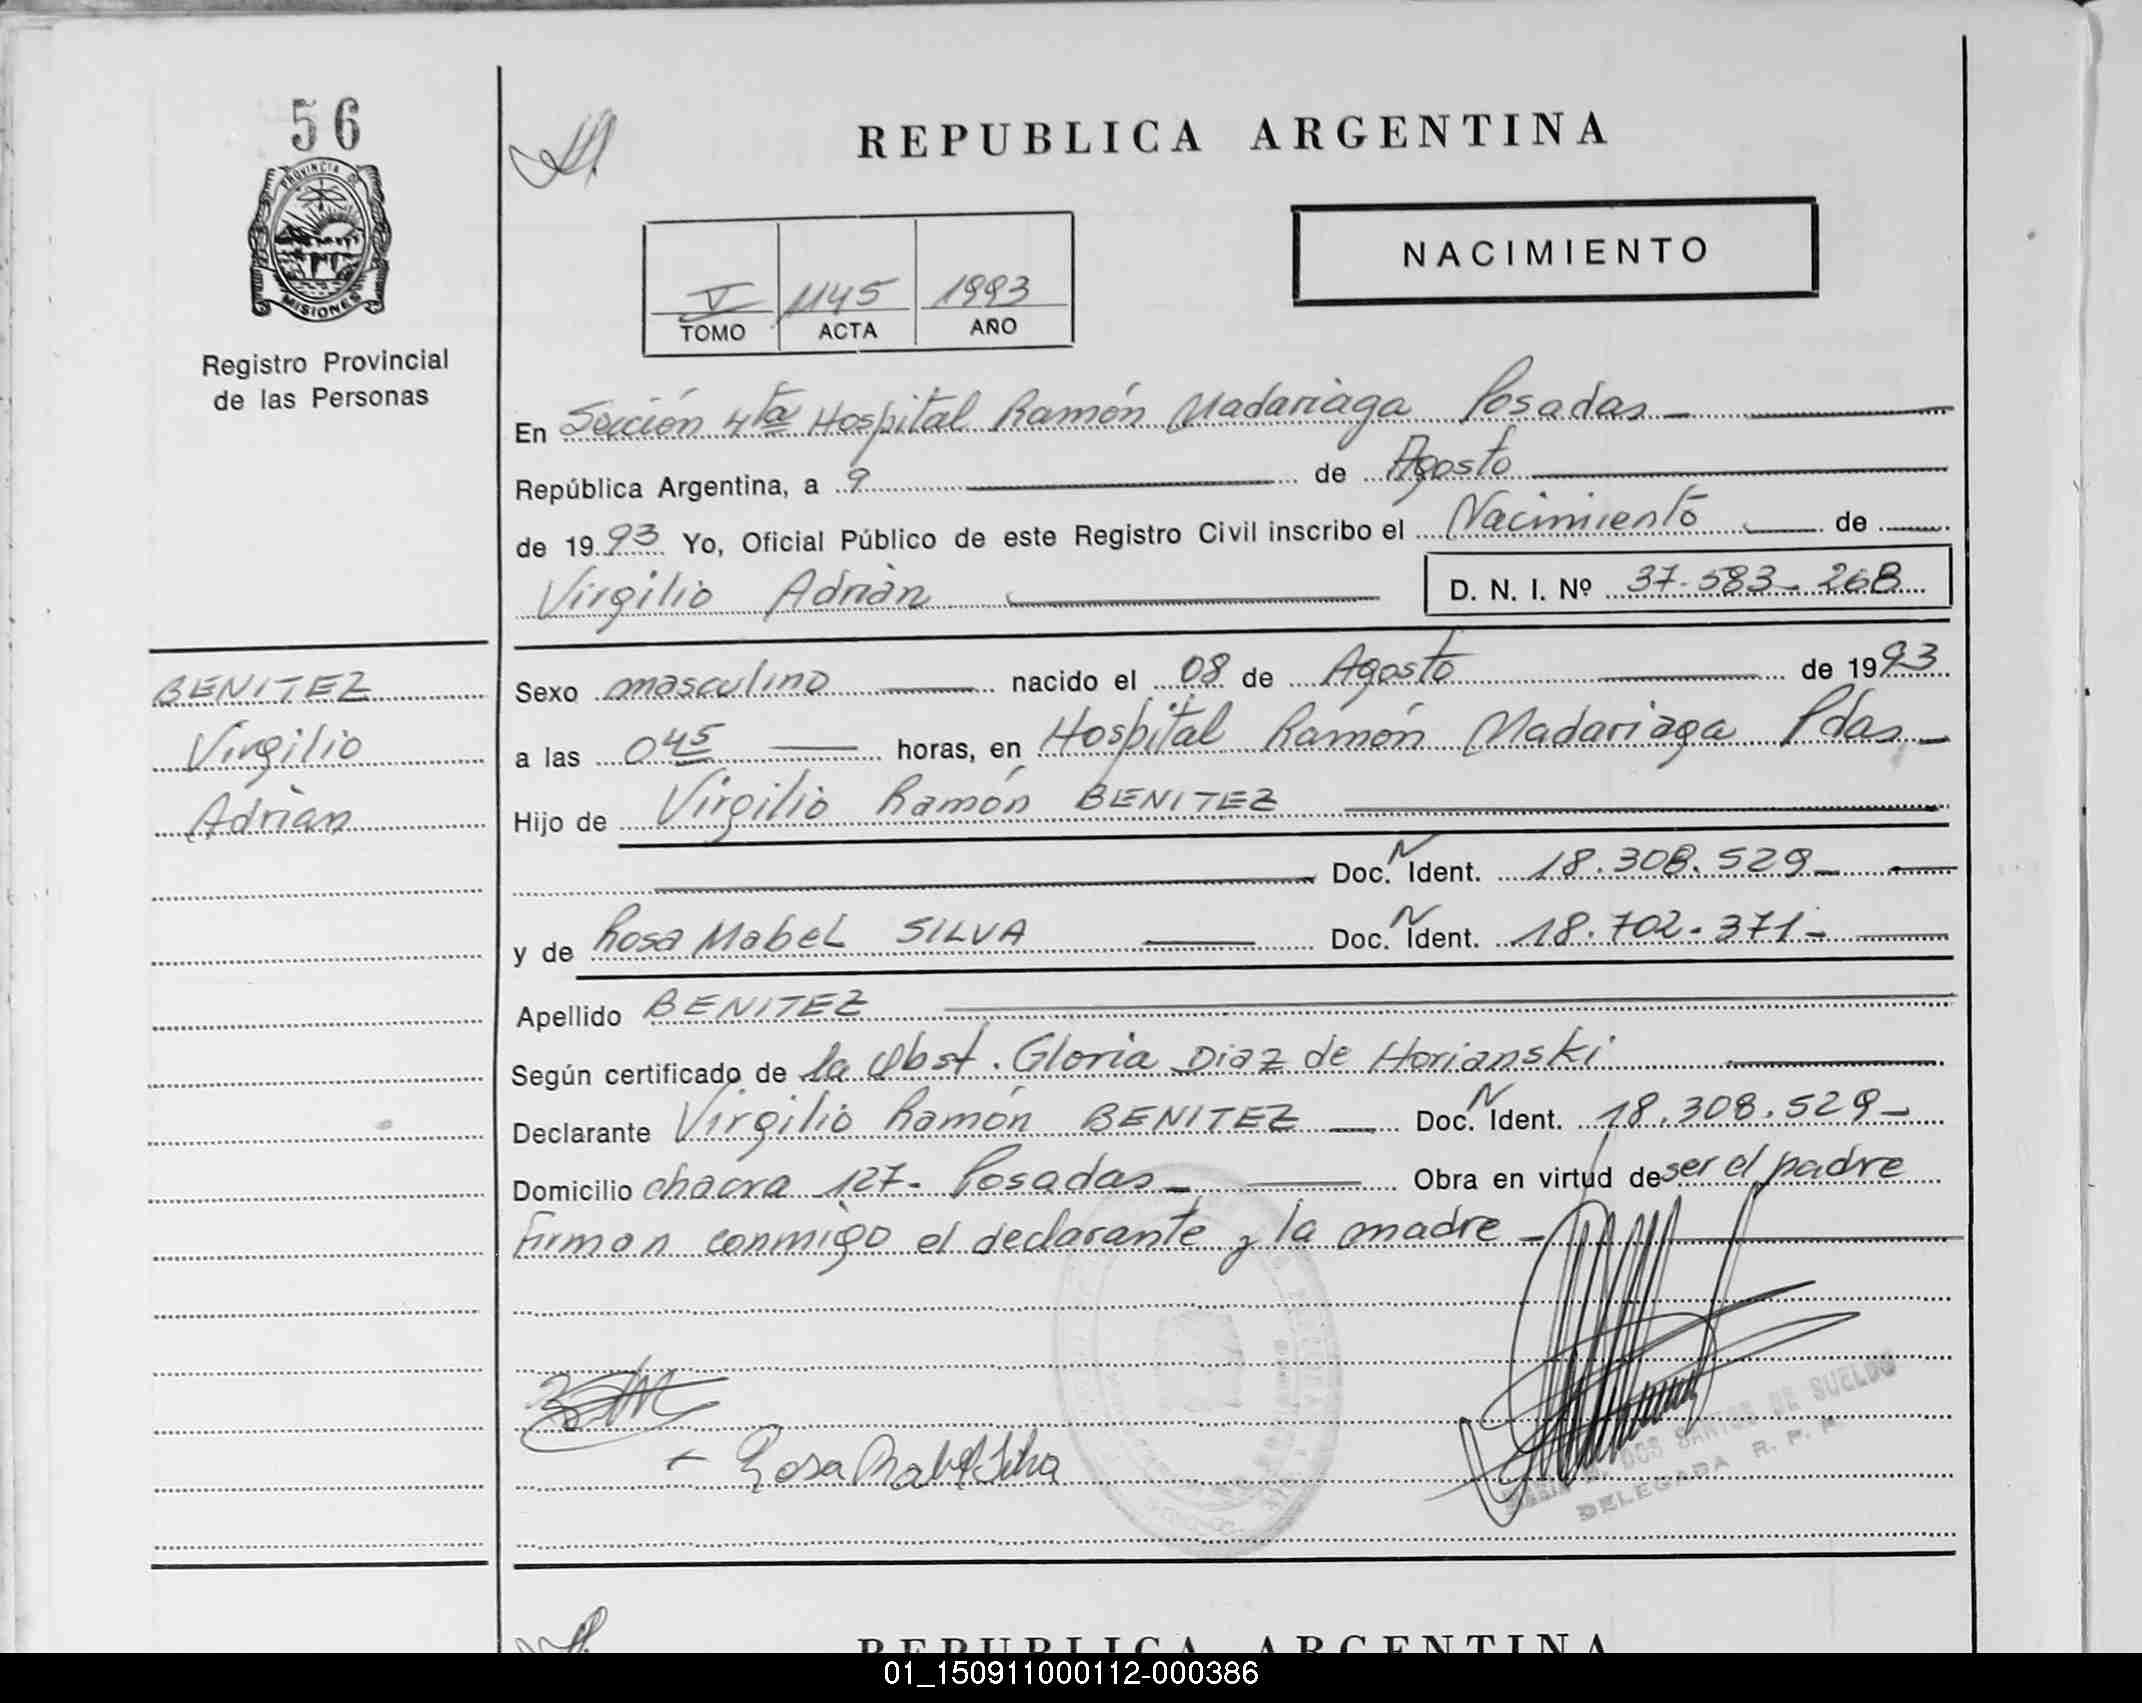 56
REPUBLICA ARGENTINA
PROVINCIA DE
MISIONES
Registro Provincial
de las Personas
NACIMIENTO
V 1145 1993
TOMO ACTA AÑO
En Sección 4ta Hospital Ramón Madariaga Posadas -
República Argentina, a 9 de Agosto
de 1993 Yo, Oficial Público de este Registro Civil inscribo el Nacimiento de
Virgilio Adrián D. N. I. Nº 37.583.268
BENITEZ
Virgilio
Adrian
Sexo masculino nacido el 08 de Agosto de 1993
a las 0 45 horas, en Hospital Ramón Madariaga Pdas -
Hijo de Virgilio Ramón BENITEZ
Doc. N Ident. 18.308.529 -
y de Rosa Mabel SILVA Doc. N Ident. 18.702.371 -
Apellido BENITEZ
Según certificado de la Obst. Gloria Diaz de Horianski
Declarante Virgilio Ramón BENITEZ Doc. N Ident. 18.308.529 -
Domicilio chacra 127 - Posadas - Obra en virtud de ser el padre
Firman conmigo el declarante y la madre -
Rosa Mabel Silva
DOS SANTOS DE SUELDO
DELEGADA R. P. P.
REPUBLICA ARGENTINA
01_150911000112-000386